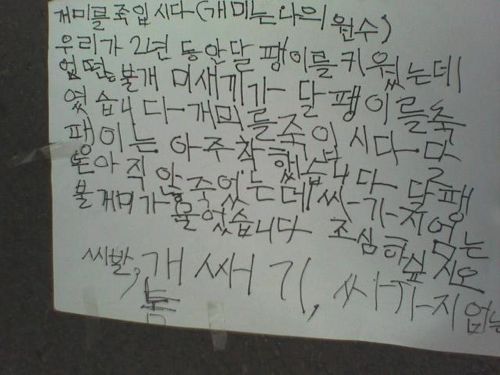 개미를죽입시다(개미는나의 원수)
우리가 2년 동안달 팽이를 키웠는데
었떤 불개 미새기가 달 팽이를죽
였습니다-개미를죽입 시다-달
팽이는 아주착했습니다 달팽
는아직 안죽었는데 싸-가-지없는
불개미가 물었습니다 조심하싶지오
씨발, 개 쌔 기, 싸-가-지 없는
놈